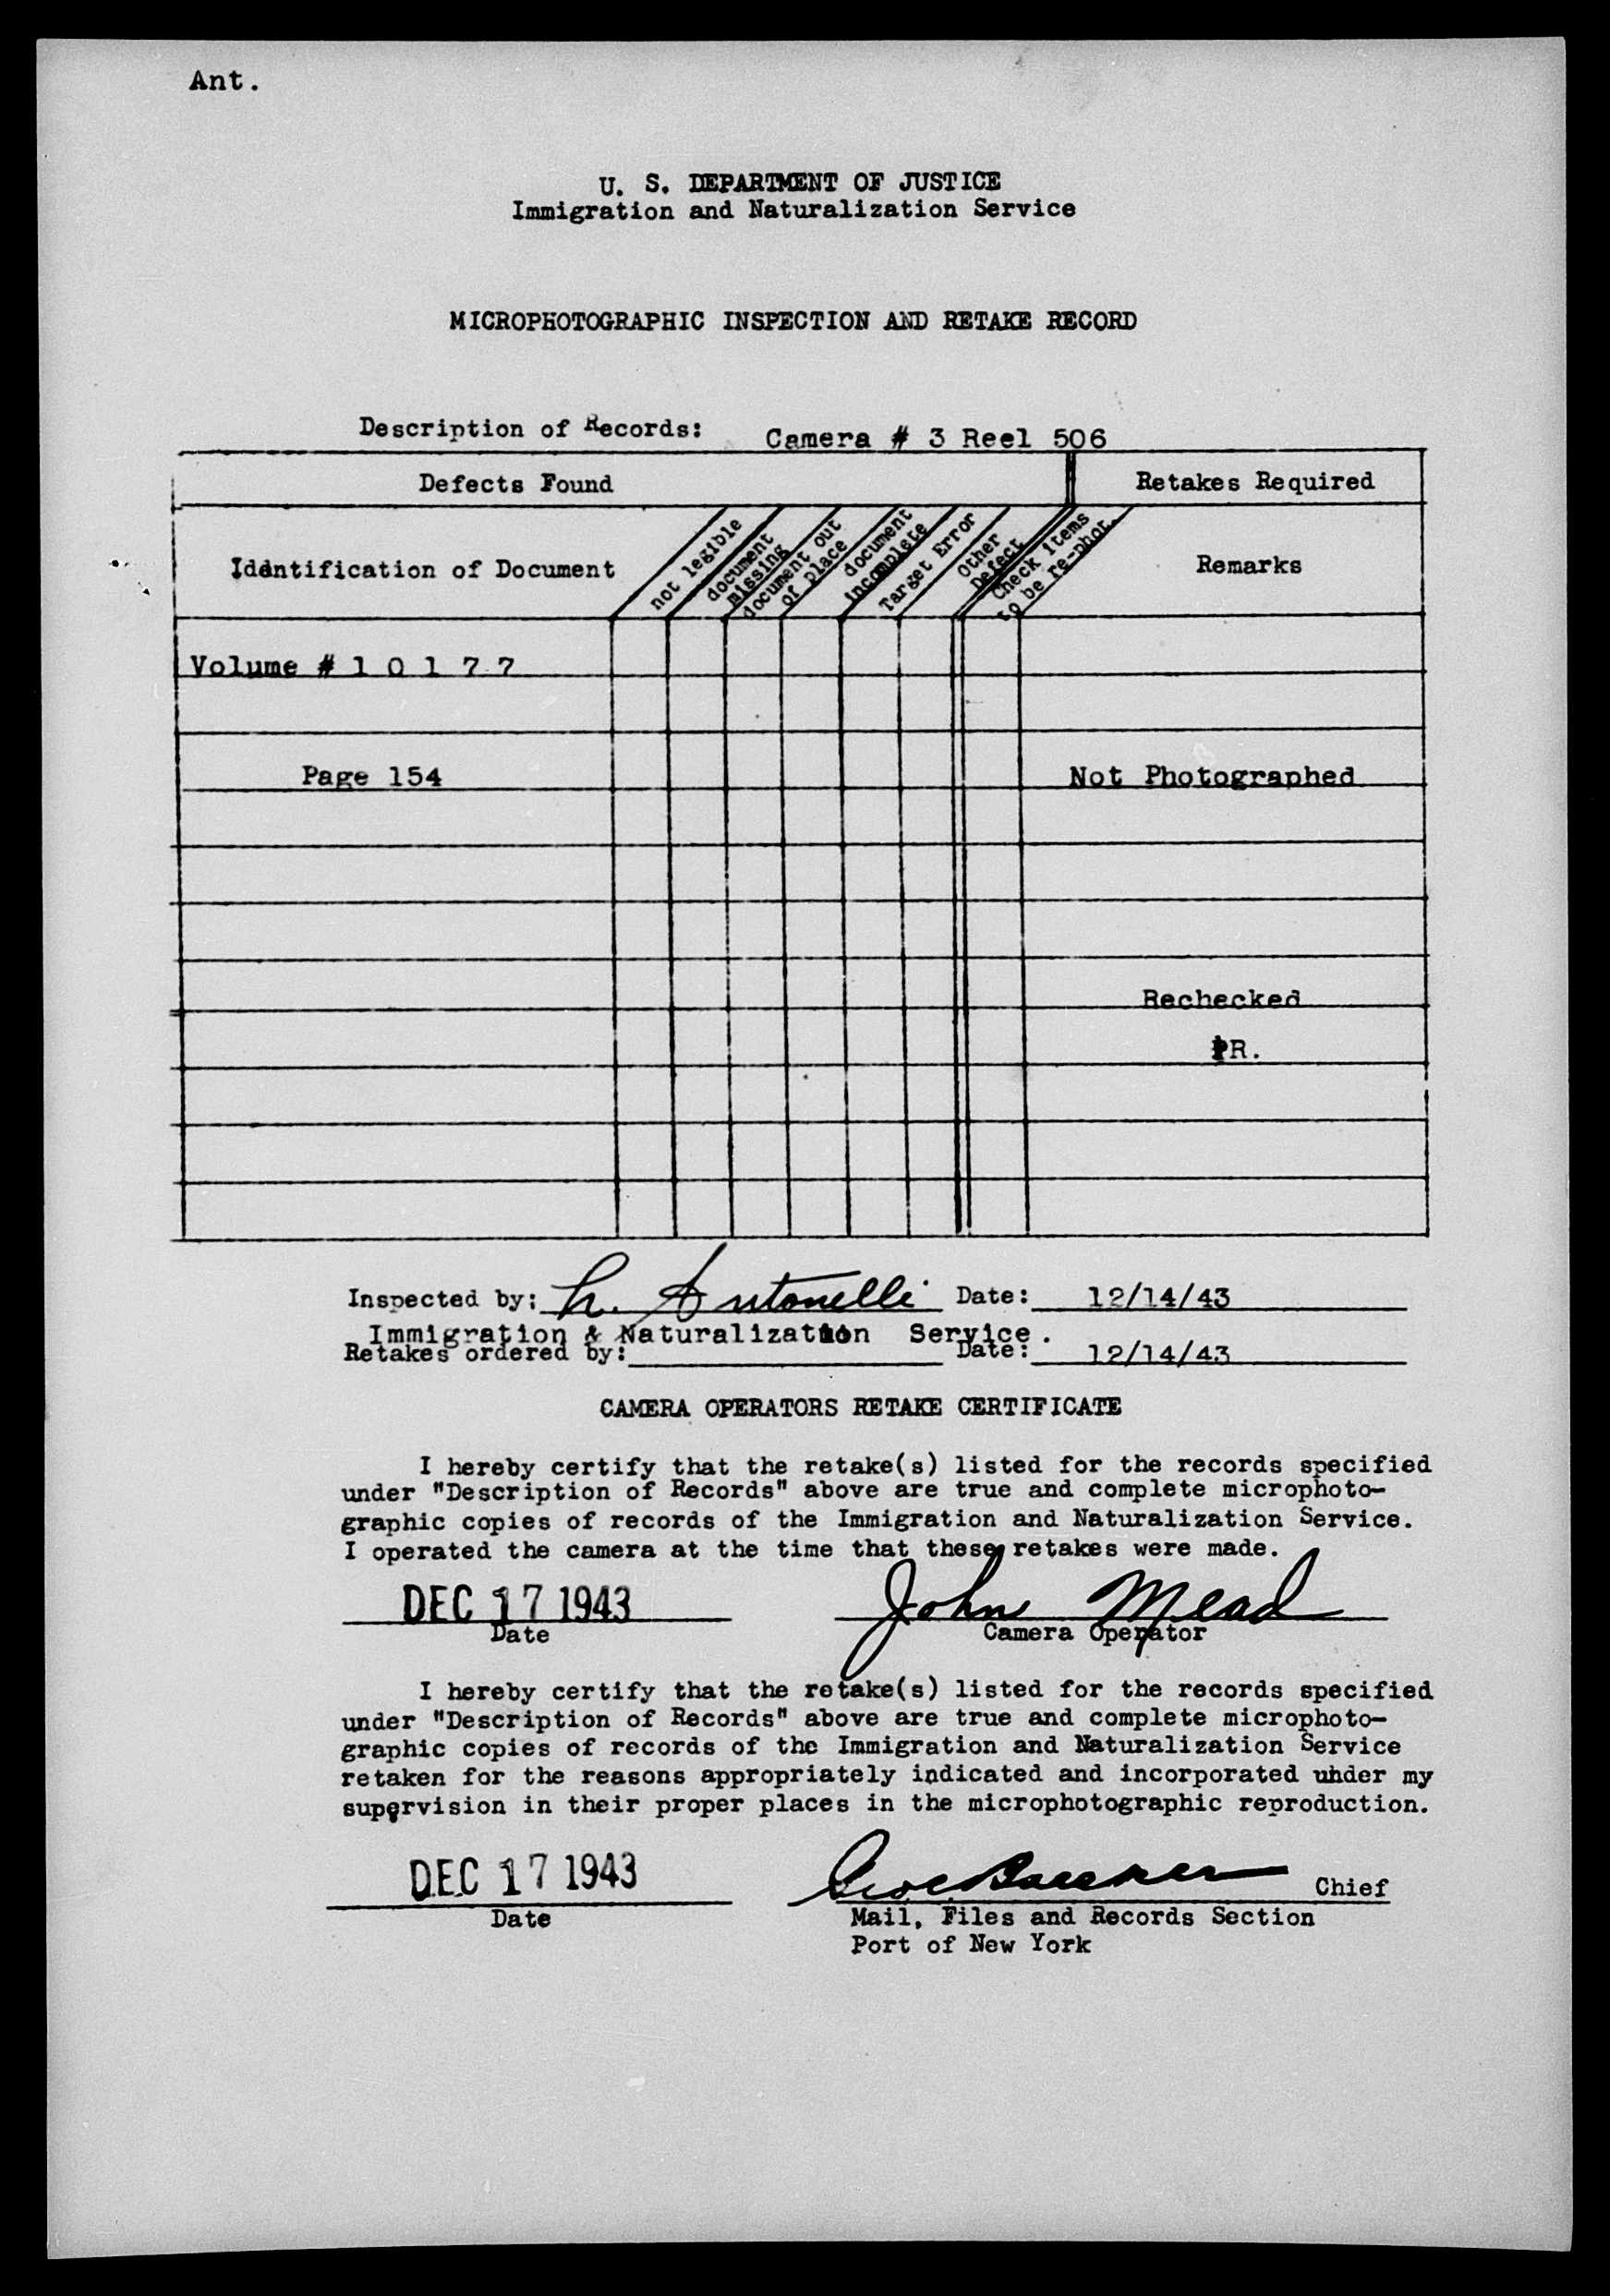 Ant.
U. S. DEPARTMENT OF JUSTICE
Immigration and Naturalization Service
MICROPHOTOGRAPHIC INSPECTION AND RETAKE RECORD
Description of Records: Camera # 3 Reel 506
Defects Found Retakes Required
Identification of Document
not legible
document
missing
document out
of place
document
incomplete
Target Error
Other
Defect
Check items
to be re-phot.
Remarks
Volume # 1 0 1 7 7
Page 154 Not Photographed
Rechecked
PR.
Inspected by: L. Antonelli Date: 12/14/43
Immigration & Naturalization Service.
Retakes ordered by: Date: 12/14/43
CAMERA OPERATORS RETAKE CERTIFICATE
I hereby certify that the retake(s) listed for the records specified
under "Description of Records" above are true and complete microphoto-
graphic copies of records of the Immigration and Naturalization Service.
I operated the camera at the time that these retakes were made.
DEC 17 1943 John Mead
Date Camera Operator
I hereby certify that the retake(s) listed for the records specified
under "Description of Records" above are true and complete microphoto-
graphic copies of records of the Immigration and Naturalization Service
retaken for the reasons appropriately indicated and incorporated uhder my
supervision in their proper places in the microphotographic reproduction.
DEC 17 1943 Chief
Date Mail, Files and Records Section
Port of New York